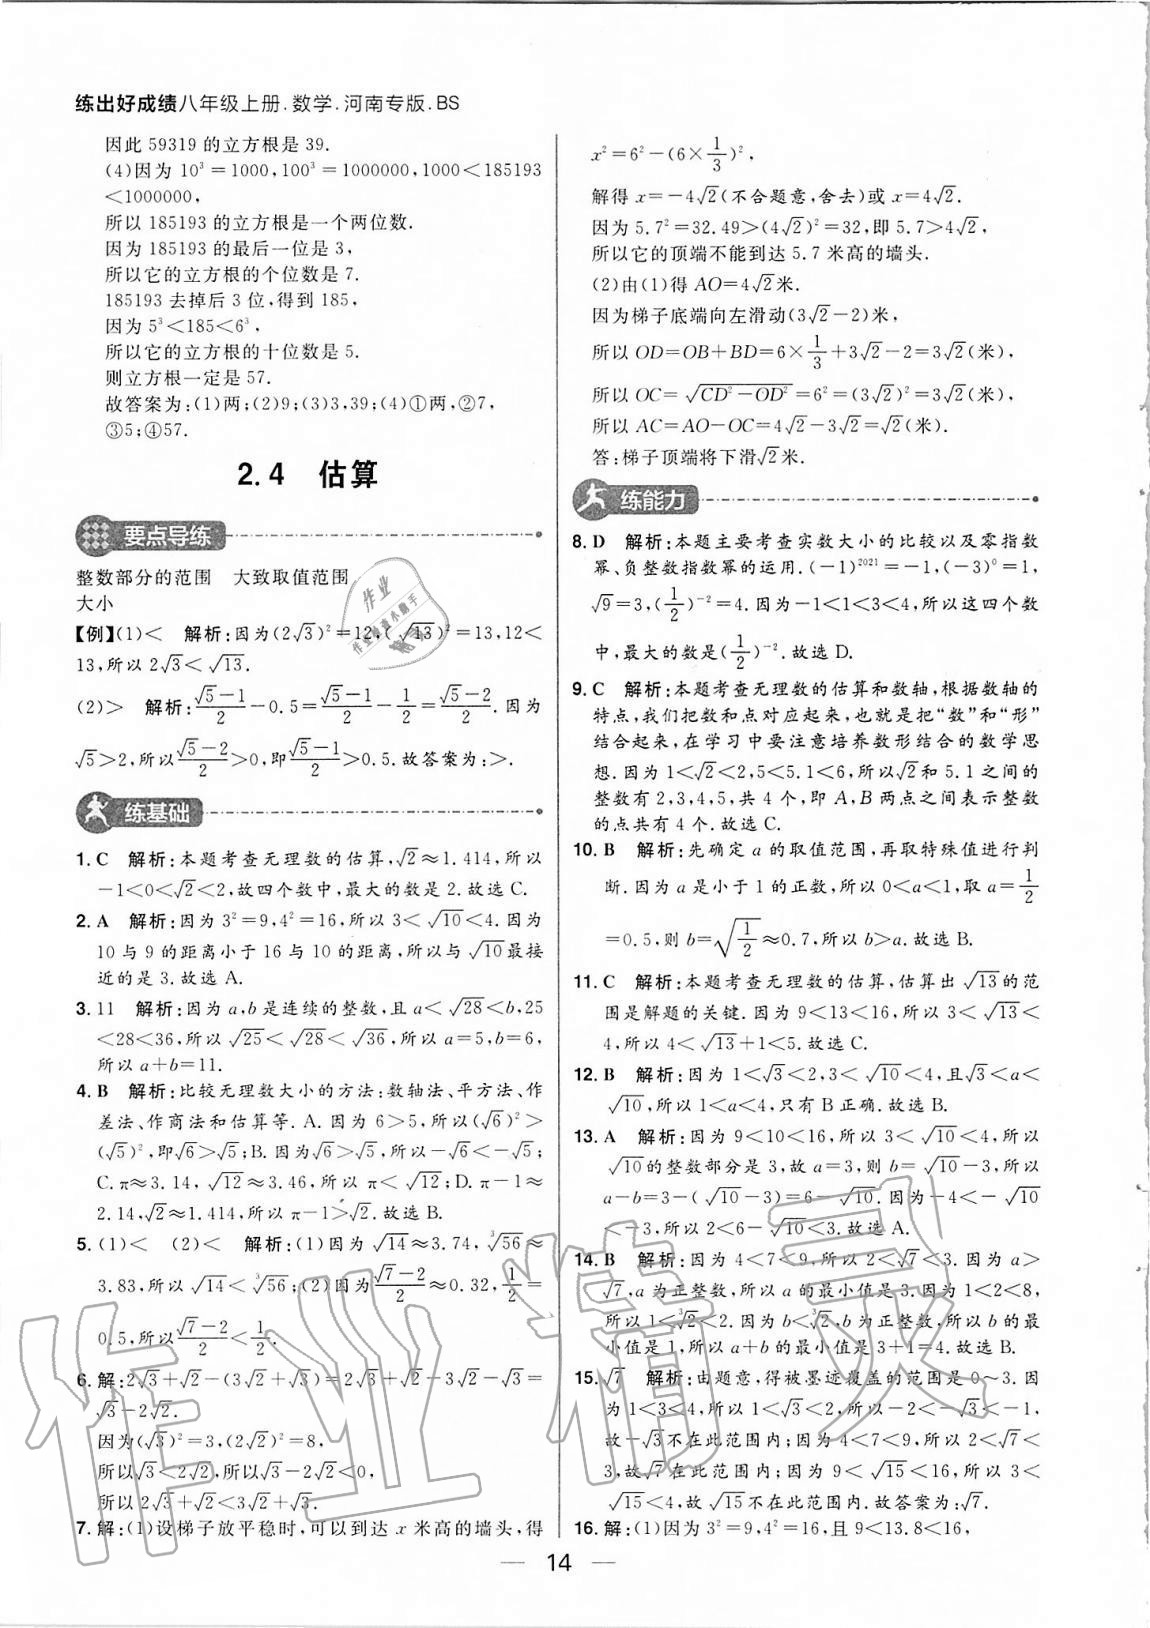 练出好成绩八年级上册.数学.河南专版.BS
因此 59319 的立方根是 39.
(4)因为 10³＝1000,100³＝1000000,1000＜185193
＜1000000,
所以 185193 的立方根是一个两位数.
因为 185193 的最后一位是 3,
所以它的立方根的个位数是 7.
185193 去掉后 3 位,得到 185,
因为 5³＜185＜6³,
所以它的立方根的十位数是 5.
则立方根一定是 57.
故答案为:(1)两;(2)9;(3)3,39;(4)①两,②7,
③5;④57.
2.4 估算
要点导练
整数部分的范围 大致取值范围
大小
【例】(1)＜ 解析:因为(2√3)²＝12,(√13)²＝13,12＜
13,所以 2√3＜√13.
(2)＞ 解析:(√5－1)/2－0.5＝(√5－1)/2－1/2＝(√5－2)/2.因为
√5＞2,所以(√5－2)/2＞0,即(√5－1)/2＞0.5.故答案为:＞.
练基础
1. C 解析:本题考查无理数的估算,√2≈1.414,所以
－1＜0＜√2＜2,故四个数中,最大的数是 2.故选 C.
2. A 解析:因为 3²＝9,4²＝16,所以 3＜√10＜4.因为
10 与 9 的距离小于 16 与 10 的距离,所以与√10最接
近的是 3.故选 A.
3. 11 解析:因为 a,b 是连续的整数,且 a＜√28＜b,25
＜28＜36,所以√25＜√28＜√36,所以 a＝5,b＝6,
所以 a＋b＝11.
4. B 解析:比较无理数大小的方法:数轴法、平方法、作
差法、作商法和估算等.A.因为 6＞5,所以(√6)²＞
(√5)²,即√6＞√5;B.因为√6＞√5,所以－√6＜－√5;
C.π≈3.14,√12≈3.46,所以 π＜√12;D.π－1≈
2.14,√2≈1.414,所以 π－1＞√2.故选 B.
5. (1)＜ (2)＜ 解析:(1)因为√14≈3.74,³√56≈
3.83,所以√14＜³√56;(2)因为(√7－2)/2≈0.32,1/2＝
0.5,所以(√7－2)/2＜1/2.
6. 解:2√3＋√2－(3√2＋√3)＝2√3＋√2－3√2－√3＝
√3－2√2.
因为(√3)²＝3,(2√2)²＝8,
所以√3＜2√2,所以√3－2√2＜0,
所以 2√3＋√2＜3√2＋√3.
7. 解:(1)设梯子放平稳时,可以到达 x 米高的墙头,得
x²＝6²－(6×1/3)²,
解得 x＝－4√2(不合题意,舍去)或 x＝4√2.
因为 5.7²＝32.49＞(4√2)²＝32,即 5.7＞4√2,
所以它的顶端不能到达 5.7 米高的墙头.
(2)由(1)得 AO＝4√2米.
因为梯子底端向左滑动(3√2－2)米,
所以 OD＝OB＋BD＝6×1/3＋3√2－2＝3√2(米),
所以 OC＝√(CD²－OD²)＝6²－(3√2)²＝3√2(米),
所以 AC＝AO－OC＝4√2－3√2＝√2(米).
答:梯子顶端将下滑√2米.
练能力
8. D 解析:本题主要考查实数大小的比较以及零指数
幂、负整数指数幂的运用.(－1)²⁰²¹＝－1,(－3)⁰＝1,
√9＝3,(1/2)⁻²＝4.因为－1＜1＜3＜4,所以这四个数
中,最大的数是(1/2)⁻².故选 D.
9. C 解析:本题考查无理数的估算和数轴,根据数轴的
特点,我们把数和点对应起来,也就是把“数”和“形”
结合起来,在学习中要注意培养数形结合的数学思
想.因为 1＜√2＜2,5＜5.1＜6,所以√2和 5.1 之间的
整数有 2,3,4,5,共 4 个,即 A,B 两点之间表示整数
的点共有 4 个.故选 C.
10. B 解析:先确定 a 的取值范围,再取特殊值进行判
断.因为 a 是小于 1 的正数,所以 0＜a＜1,取 a＝1/2
＝0.5,则 b＝√(1/2)≈0.7,所以 b＞a.故选 B.
11. C 解析:本题考查无理数的估算,估算出√13的范
围是解题的关键.因为 9＜13＜16,所以 3＜√13＜
4,所以 4＜√13＋1＜5.故选 C.
12. B 解析:因为 1＜√3＜2,3＜√10＜4,且√3＜a＜
√10,所以 1＜a＜4,只有 B 正确.故选 B.
13. A 解析:因为 9＜10＜16,所以 3＜√10＜4,所以
√10的整数部分是 3,故 a＝3,则 b＝√10－3,所以
a－b＝3－(√10－3)＝6－√10.因为－4＜－√10
＜－3,所以 2＜6－√10＜3.故选 A.
14. B 解析:因为 4＜7＜9,所以 2＜√7＜3.因为 a＞
√7,a 为正整数,所以 a 的最小值是 3.因为 1＜2＜8,
所以 1＜³√2＜2.因为 b＜³√2,b 为正整数,所以 b 的最
小值是 1,所以 a＋b 的最小值是 3＋1＝4.故选 B.
15. √7 解析:由题意,得被墨迹覆盖的范围是 0～3.因
为 1＜3＜4,所以 1＜√3＜2,所以－2＜－√3＜－1,
故－√3不在此范围内;因为 4＜7＜9,所以 2＜√7＜
3,故√7在此范围内;因为 9＜√15＜16,所以 3＜
√15＜4,故√15不在此范围内.故答案为:√7.
16. 解:(1)因为 3²＝9,4²＝16,且 9＜13.8＜16,
— 14 —
作业精灵